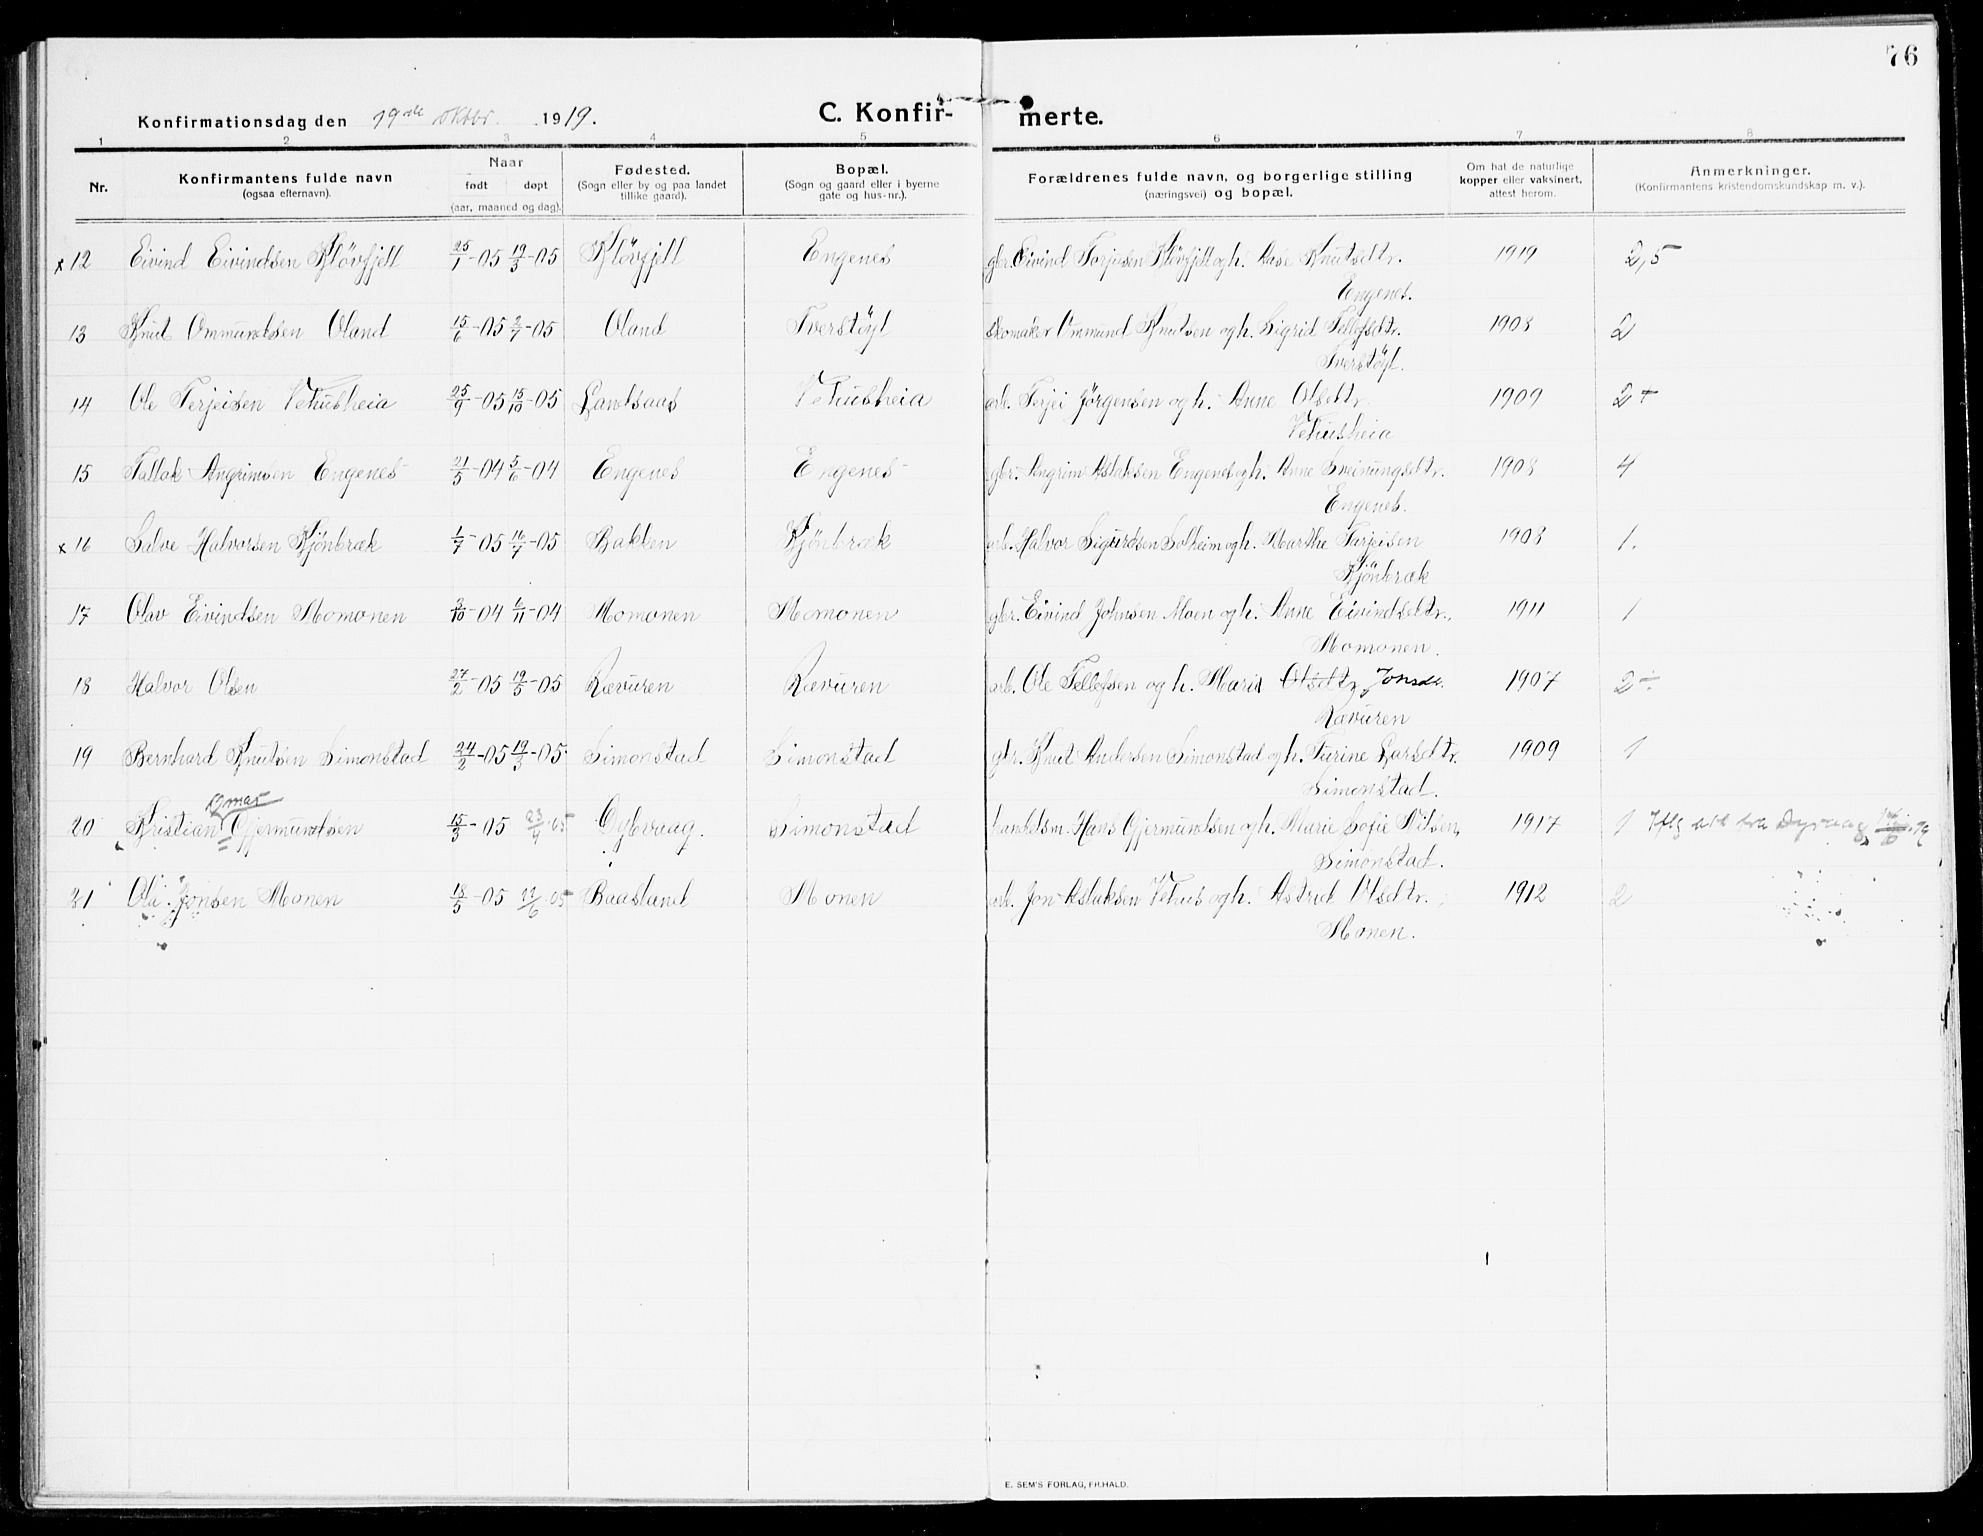 76
Konfirmationsdag den 19de oktbr. 1919. C. Konfir- merte.
1 2 3 4 5 6 7 8
Nr. Konfirmantens fulde navn (ogsaa efternavn). Naar født døpt (aar, maaned og dag). Fødested. (Sogn eller by og paa landet tillike gaard). Bopæl. (Sogn og gaard eller i byerne gate og hus-nr.). Forældrenes fulde navn, og borgerlige stilling (næringsvei) og bopæl. Om hat de naturlige kopper eller vaksinert, attest herom. Anmerkninger. (Konfirmantens kristendomskundskap m. v.).
x 12 Eivind Eivindsen Kløvfjell 25/1-05 19/3-05 Kløvfjell Engenes gbr. Eivind Torjussen Kløvfjell og h. Aase Knutsdtr. 1919 2,5
Engenes.
13 Knut Ommundsen Oland 15/6-05 2/7-05 Oland Tverstöyl skomaker Ommund Knutsen og h. Sigrid Tellefsdtr. 1908 2
Tverstöyl.
14 Ole Terjeisen Vehusheia 25/9-05 15/10-05 Landsaas Vehusheia arb. Terjei Jörgensen og h. Anne Olsdtr. 1909 2+
Vehusheia
15 Tallak Angrimsen Engenes 21/5-04 5/6-04 Engenes Engenes gbr. Angrim Aslaksen Engenes og h. Anne Sveinungsdtr. 1908 4
Engenes.
x 16 Salve Halvorsen Kjönbræk 1/7-05 16/7-05 Bakken Kjönbræk arb. Halvor Sigurdsen Solheim og h. Marthe Terjeisen 1908 1.
Kjönbræk
17 Olav Eivindsen Momonen 2/10-04 6/11-04 Momonen Momonen gbr. Eivind Johnsen Moen og h. Anne Eivindsdtr. 1911 1
Momonen.
18 Halvor Olsen 27/2-05 19/5-05 Rævuren Rævuren arb. Ole Tellefsen og h. Mari Olsdtr Jonsdr. 1907 2÷
Rævuren
19 Bernhard Knutsen Simonstad 24/2-05 19/3-05 Simonstad Simonstad gbr. Knut Andersen Simonstad og h. Turine Larsdtr. 1909 1
Simonstad.
20 Kristian Gjermundsen 15/3-05 23/4-05 Dybvaag. Simonstad handelsm. Hans Gjermundsen og h. Marie Sofie Nilsen, 1917 1
Simonstad.
21 Ola Jonsen Monen 18/5-05 22/6-05 Baasland Monen arb. Jon Aslaksen Vehus og h. Astrid Olsdtr. 1912 2
Monen.
E. SEM'S FORLAG, FR.HALD.